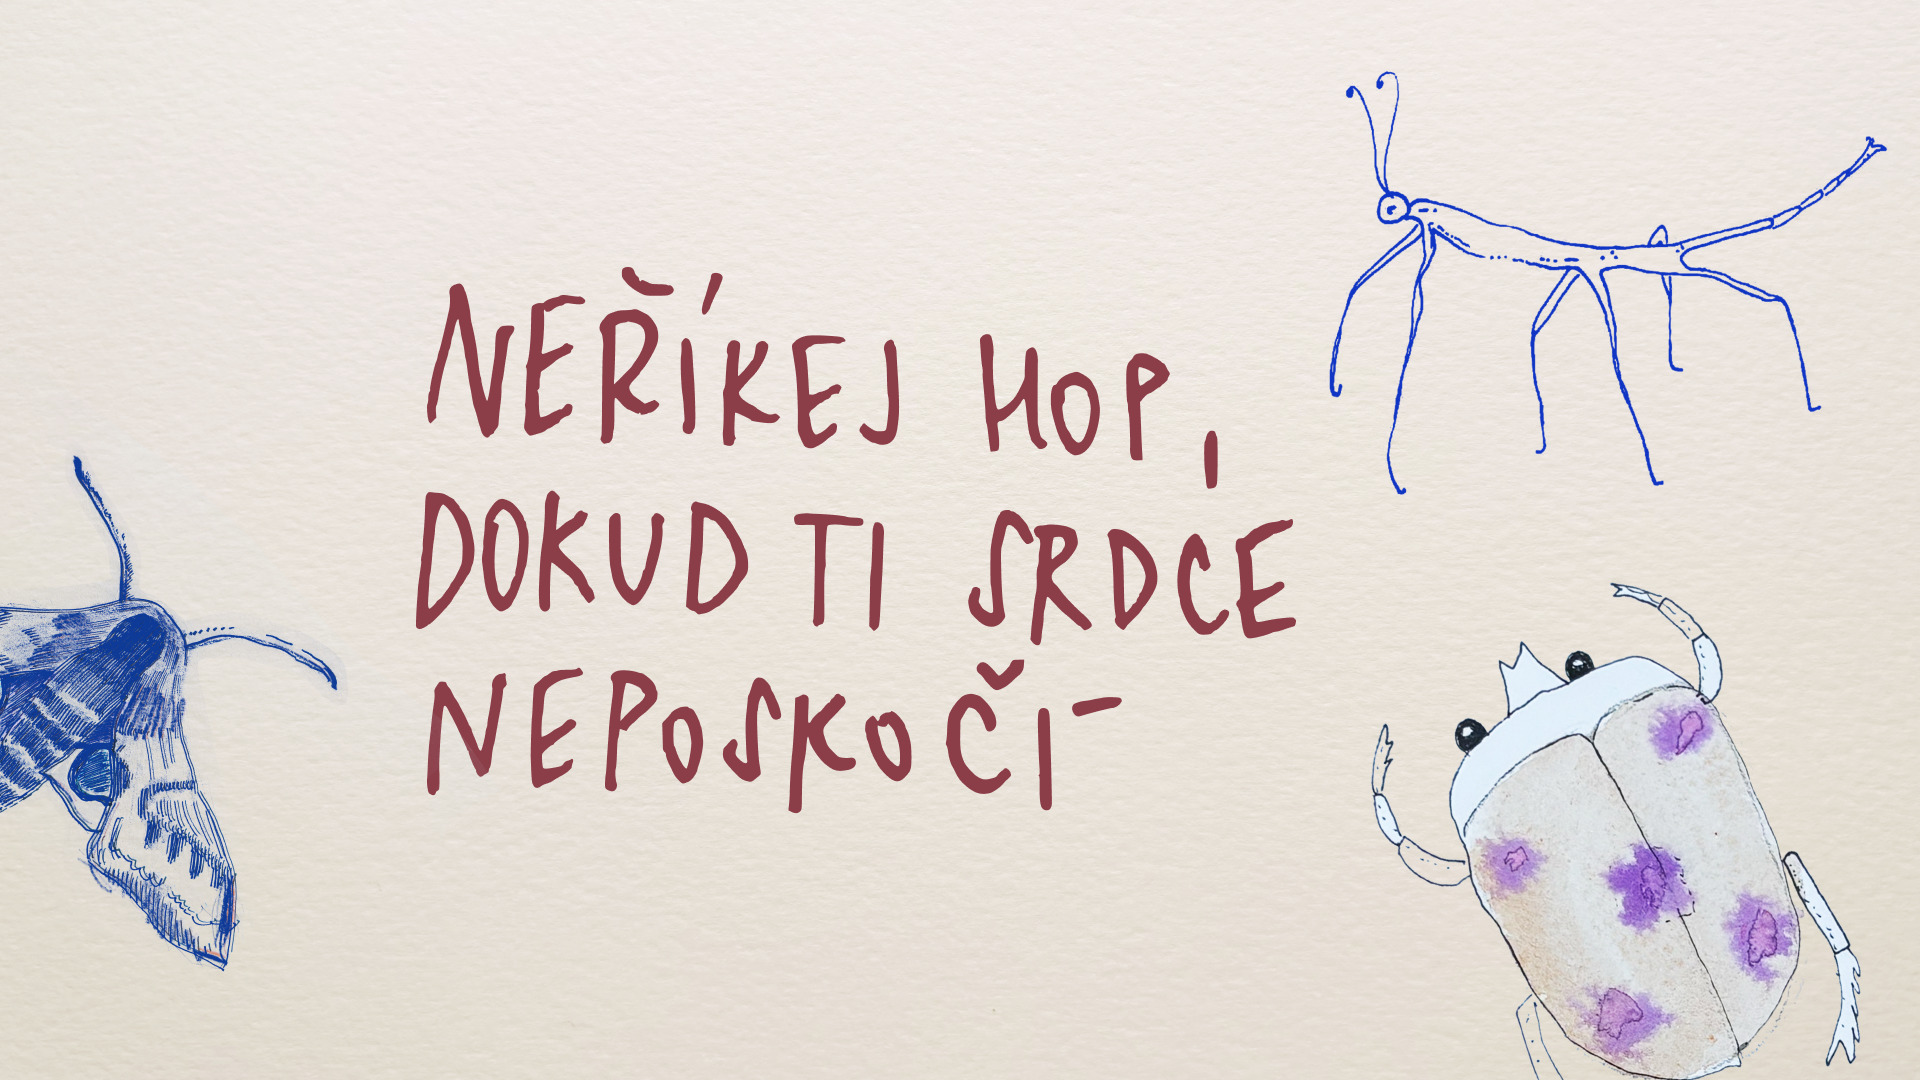 NEŘÍKEJ HOP,
DOKUD TI SRDCE
NEPOSKOČÍ